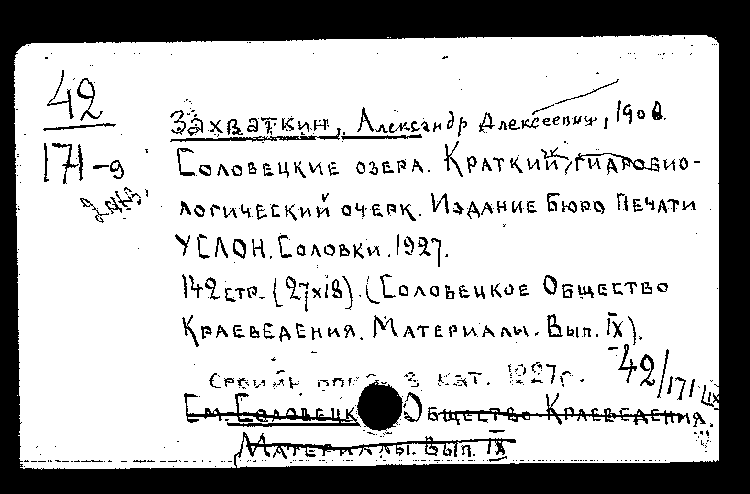 42
171-9
2 экз.
Захваткин, Александр Алексеевич, 1906.
Соловецкие озера. Краткий гидробио-
логический очерк. Издание Бюро Печати
УСЛОН. Соловки. 1927.
142 стр. (27х18). (Соловецкое Общество
Краеведения. Материалы. Вып. IX).
кат. 1927г.
42/171 IX
См. Соловецк Общество Краеведения.
Материалы. Вып. IX